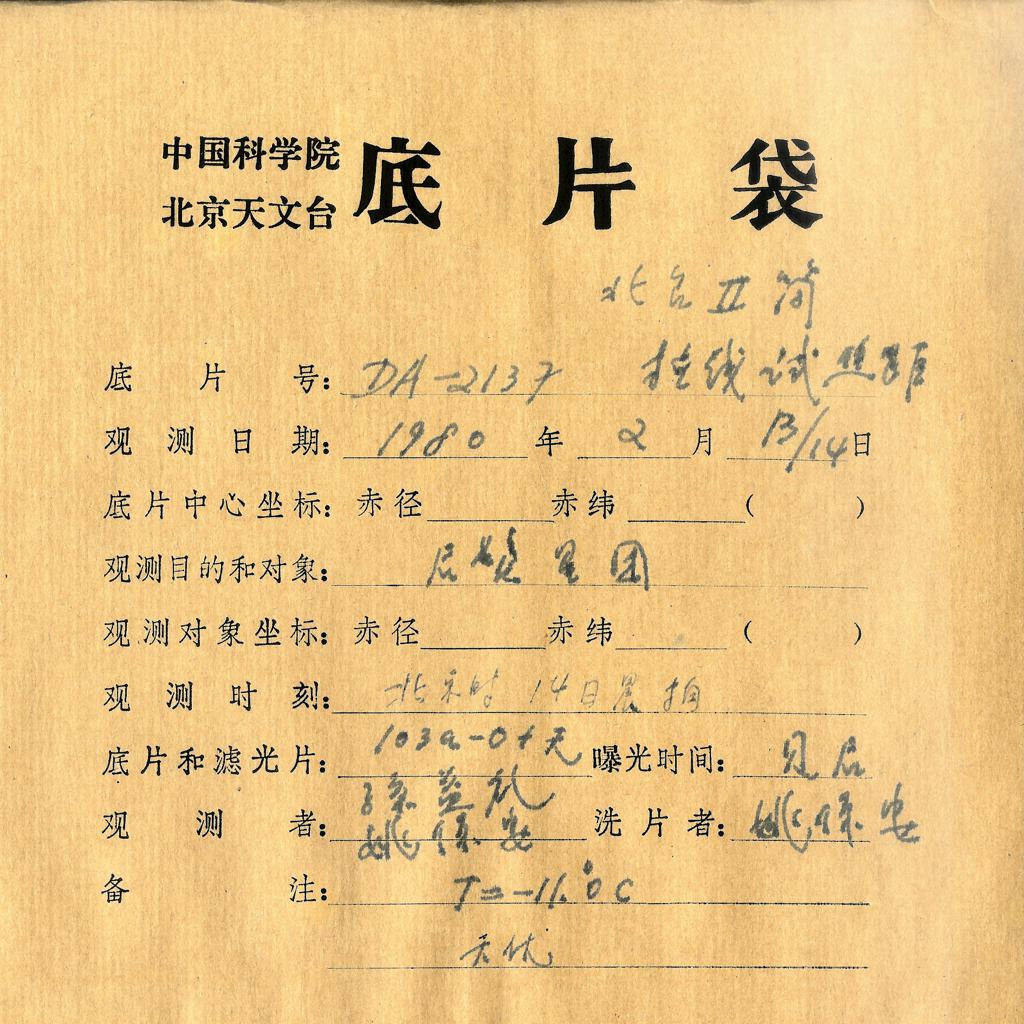 中国科学院 底片袋
北京天文台
北台II筒
底片号: DA-2137 挂线试照距
观测日期: 1980年2月13/14日
底片中心坐标: 赤径 赤纬 ( )
观测目的和对象: 后发星团
观测对象坐标: 赤径 赤纬 ( )
观测时刻: 北京时 14日晨拍
底片和滤光片: 103a-O+无 曝光时间: 见后
观测者: 孙益礼 姚保安 洗片者: 姚保安
备注: T=-11.°0C
天优